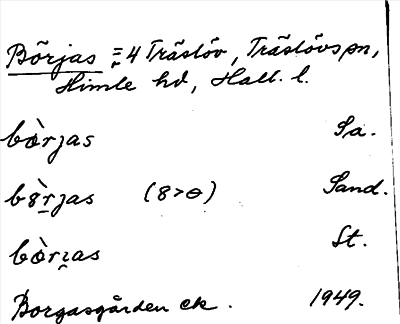 Börjas = 4 Träslöv, Träslövs sn,
Himle hd, Hall. l.
bòrjas Sa.
b8̀rjas (8>ɵ) Sand.
bòrɩas St.
Borgasgården ek. 1949.